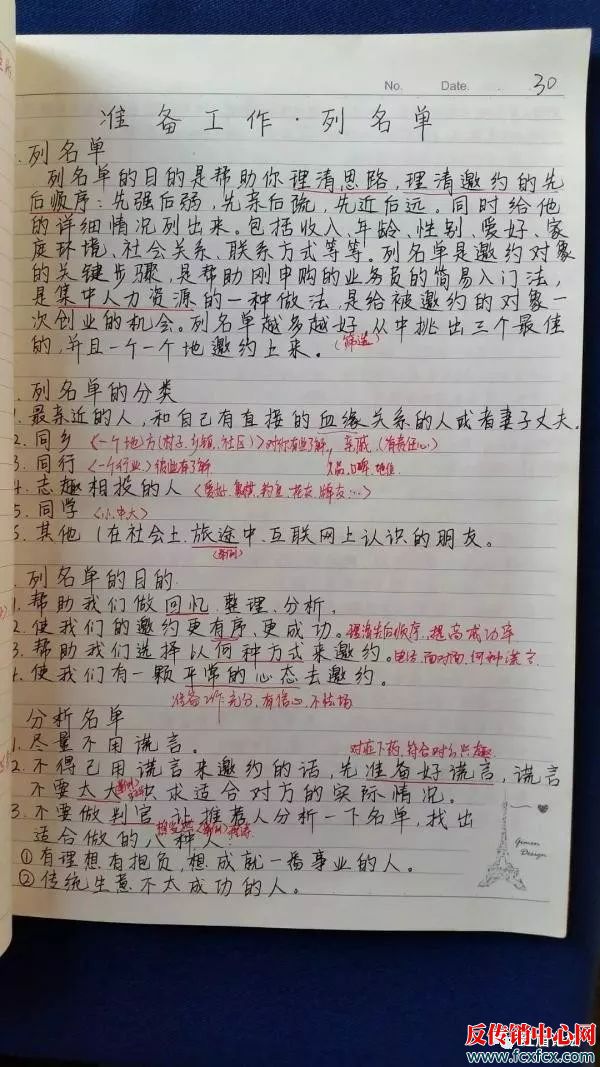 No. Date. 30
准备工作·列名单
列名单
列名单的目的是帮助你理清思路,理清邀约的先
后顺序:先强后弱,先亲后疏,先近后远。同时给他
的详细情况列出来。包括收入、年龄、性别、爱好、家
庭环境、社会关系、联系方式等等。列名单是邀约对象
的关键步骤,是帮助刚申购的业务员的简易入门法,
是集中人力资源的一种做法,是给被邀约的对象一
次创业的机会。列名单越多越好,从中挑出三个最佳
的,并且一个一个地邀约上来。(筛选)
列名单的分类
1. 最亲近的人,和自己有直接的血缘关系的人或者妻子丈夫。
2. 同乡 <一个地方(村子、乡镇、社区)>对你有些了解 亲戚(有责任心)
3. 同行 <一个行业>彼此有了解 人品、口碑、地位
4. 志趣相投的人 <爱好、象棋、钓鱼、花友、牌友…>
5. 同学 <小、中、大>
6. 其他(在社会上、旅途中、互联网上认识的朋友。
(举例)
列名单的目的
1. 帮助我们做回忆、整理、分析。
2. 使我们的邀约更有序、更成功。理清先后顺序,提高成功率
3. 帮助我们选择以何种方式来邀约。电话、面对面、何种谎言
4. 使我们有一颗平常的心态去邀约。
准备工作充分,有信心,不怯场
分析名单
1. 尽量不用谎言。 对症下药,符合对方兴趣
2. 不得已用谎言来邀约的话,先准备好谎言,谎言
不要太大,以求适合对方的实际情况。
3. 不要做判官,让推荐人分析一下名单,找出
适合做的八种人:
①有理想有抱负,想成就一番事业的人。
②传统生意不太成功的人。
Design
反传销中心网
www.fcxfcx.com